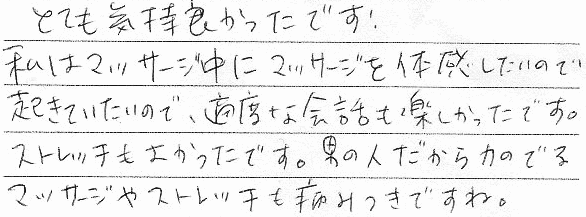 とても気持良かったです!
私はマッサージ中にマッサージを体感したいので
起きていたいので、適度な会話も楽しかったです。
ストレッチもよかったです。男の人だから力のでる
マッサージやストレッチも病みつきですね。